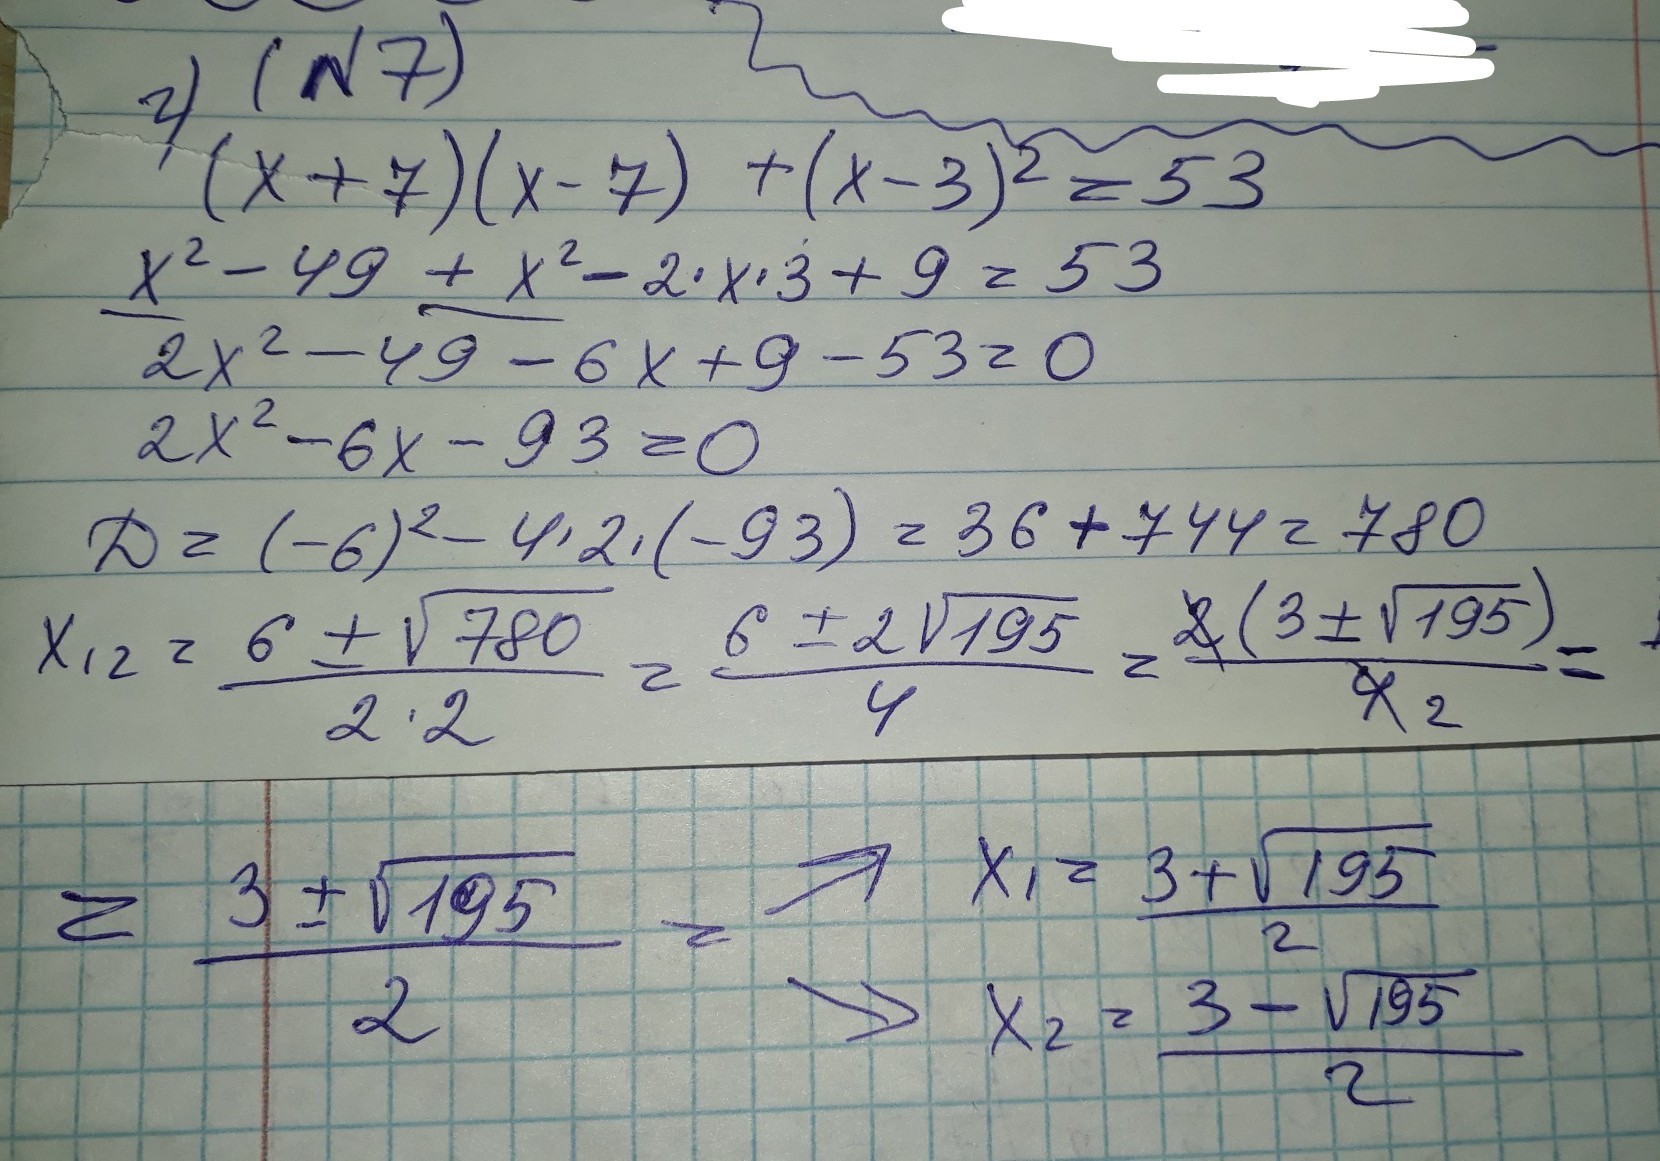 г) (№7)
(x+7)(x-7) +(x-3)² = 53
x² - 49 + x² - 2·x·3 + 9 = 53
2x² - 49 - 6x + 9 - 53 = 0
2x² - 6x - 93 = 0
D = (-6)² - 4·2·(-93) = 36 + 744 = 780
x₁₂ = (6 ± √780)/(2·2) = (6 ± 2√195)/4 = 2(3 ± √195)/4 2 =
= (3 ± √195)/2 =
x₁ = (3 + √195)/2
x₂ = (3 - √195)/2